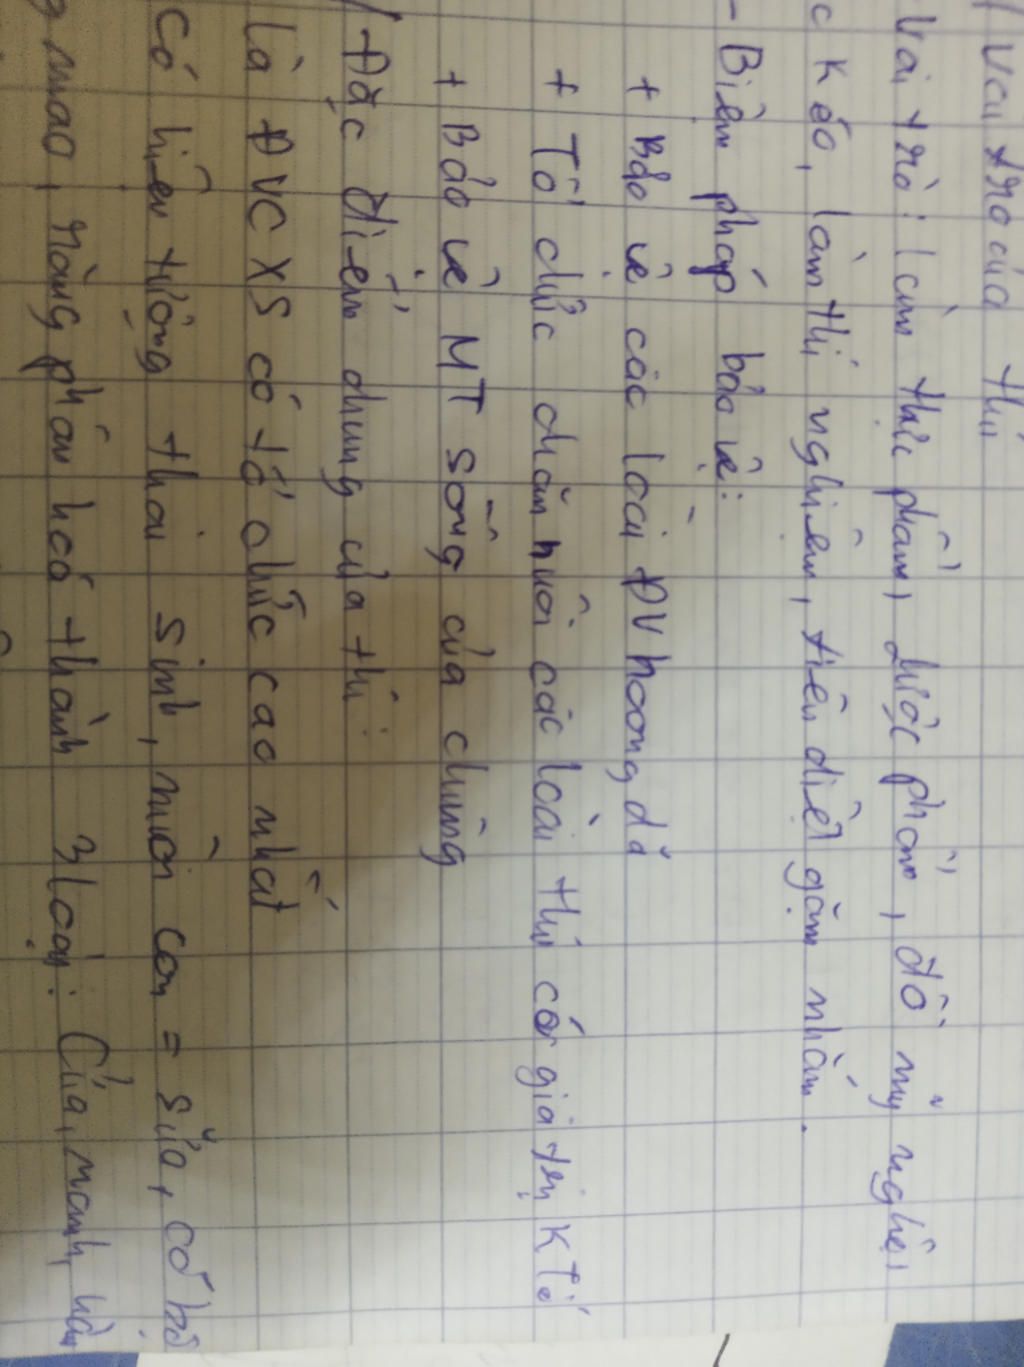 / Vai trò của thú
Vai trò: làm thực phẩm, dược phẩm, đồ mỹ nghệ,
c kéo, làm thí nghiệm, tiêu diệt gặm nhấm.
- Biện pháp bảo vệ:
+ Bảo vệ các loài ĐV hoang dã
+ Tổ chức chăn nuôi các loài thú có giá trị KTế
+ Bảo vệ MT sống của chúng
/ Đặc điểm chung của thú:
là ĐVCXS có tổ chức cao nhất
có hiện tượng thai sinh, nuôi con = sữa, có bộ
g mao, răng phân hoá thành 3 loại: Cửa, nanh, hàm